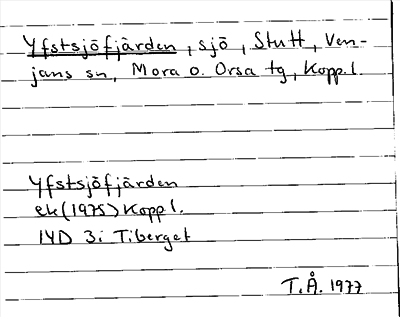 Yfstsjöfjärden, sjö, Stutt, Ven-
jans sn, Mora o. Orsa tg, Kopp.l.
Yfstsjöfjärden
ek (1975) Kopp l.
14D 3i Tiberget
T.Å. 1977